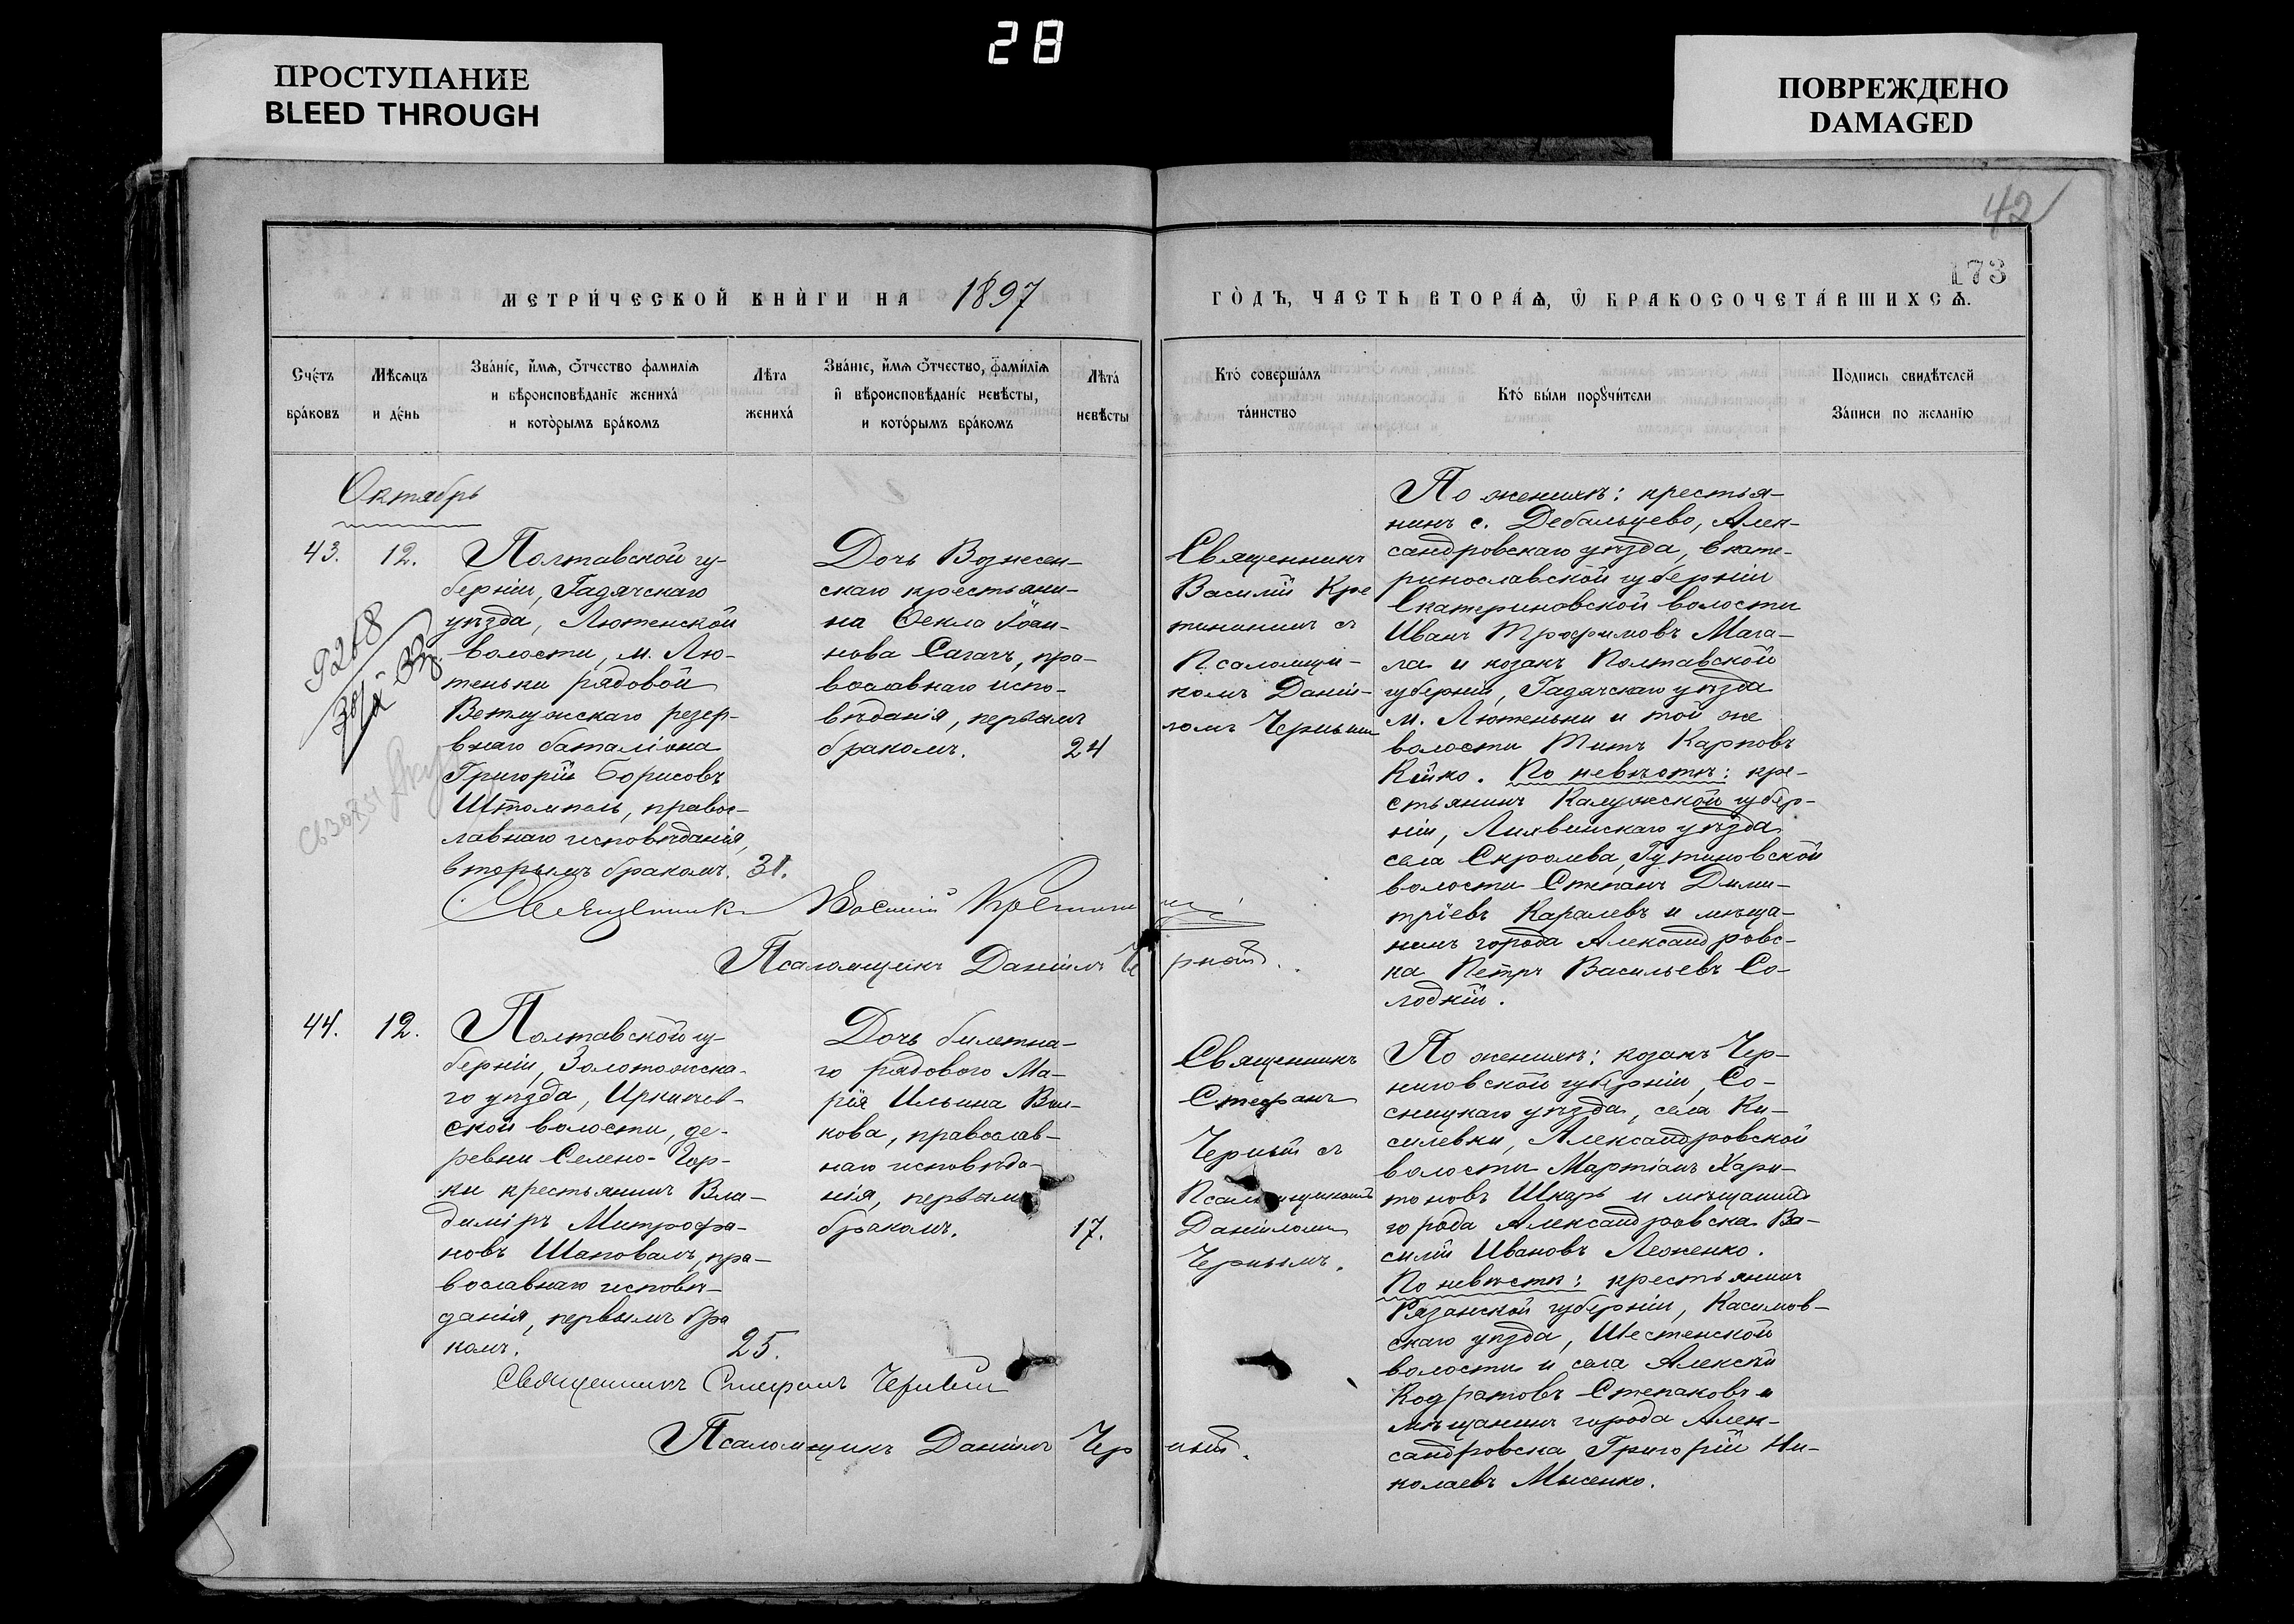 28
ПРОСТУПАНИЕ
BLEED THROUGH
ПОВРЕЖДЕНО
DAMAGED
42
173
МЕТРИ́ЧЕСКОЙ КНИ́ГИ НА 1897
ГО́ДЪ, ЧАСТЬ ВТОРА́Ѧ, Ѽ БРАКОСОЧЕТА́ВШИХСѦ.
Сче́тъ
бра́ковъ
Мѣсѧцъ
и де́нь
Зва́нїе, и҆́мѧ, ѻ҆́тчество фамилїѧ
и вѣроисповѣданїе жениха́
и кото́рымъ бра́комъ
Лѣта
жениха́
Зва́нїе, и҆́мѧ ѻ҆́тчество, фами́лїѧ
и҆ вѣроисповѣда́нїе невѣсты,
и кото́рымъ бра́комъ
Лѣта́
невѣсты
Кто́ соверша́лъ
та́инство
Кто́ бы́ли порꙋчи́тели
Подпись свидѣтелей
За́писи по жела́нїю
Октябрь
43.
12.
Полтавской гу-
берніи, Гадячскаго
уѣзда, Лютенской
волости, м. Лю-
теньки рядовой
Ветлужскаго резер-
внаго баталіона
Григорій Борисовъ
Штомпель, правос-
лавнаго исповѣданія,
вторымъ бракомъ. 31.
Дочь Вознесен-
скаго крестьяни-
на Ѳекла Іоан-
нова Сагачъ, пра-
вославнаго испо-
вѣданія, первымъ
бракомъ. 24
Священникъ
Василій Кре
тининъ съ
Псаломщи-
комъ Даніи-
ломъ Чернымъ
По женихѣ: крестья-
нинъ с. Дебальцево, Алек-
сандровскаго уѣзда, Екате-
ринославской губерніи
Екатериновской волости
Иванъ Трофимовъ Мага-
ла и козакъ Полтавской
губерніи, Гадячскаго уѣзда
м. Лютеньки и той же
волости Титъ Карповъ
Кійко. По невѣстѣ: кре-
стьянинъ Калужской губер-
ніи, Лихвинскаго уѣзда
села Скролева, Гутиновской
волости Степанъ Дими-
тріевъ Каралевъ и мѣща-
нинъ города Александровс-
ка Петръ Васильевъ Со-
лодкій.
Священникъ Василій Кретининъ
Псаломщикъ Даніилъ Черный.
44.
12.
Полтавской гу-
берніи, Золотоножска-
го уѣзда, Иркліев-
ской волости, де-
ревни Селено-Гор-
ки крестьянинъ Вла-
диміръ Митрофа-
новъ Шаповалъ, пра-
вославнаго исповѣ-
данія, первымъ бра
комъ. 25.
Дочь билетна-
го рядового Ма-
рія Ильина Вол-
кова, православ-
наго исповѣда-
нія, первымъ
бракомъ. 17.
Священникъ
Стефанъ
Черный съ
Псаломщикомъ
Даніиломъ
Чернымъ.
По женихѣ: козакъ Чер-
ниговской губерніи, Со-
сницкаго уѣзда, села Ки-
силевки, Александровской
волости Мартіанъ Хари-
тоновъ Шкарь и мѣщанинъ
города Александровска Ва-
силій Ивановъ Леоненко.
По невѣстѣ: крестьянинъ
Рязанской губерніи, Касимов-
скаго уѣзда, Шестенской
волости и села Алексѣй
Кодратовъ Степаковъ и
мѣщанинъ города Алек-
сандровска Григорій Ни-
колаевъ Мысенко.
Священникъ Стефанъ Черный
Псаломщикъ Даніилъ Черный.